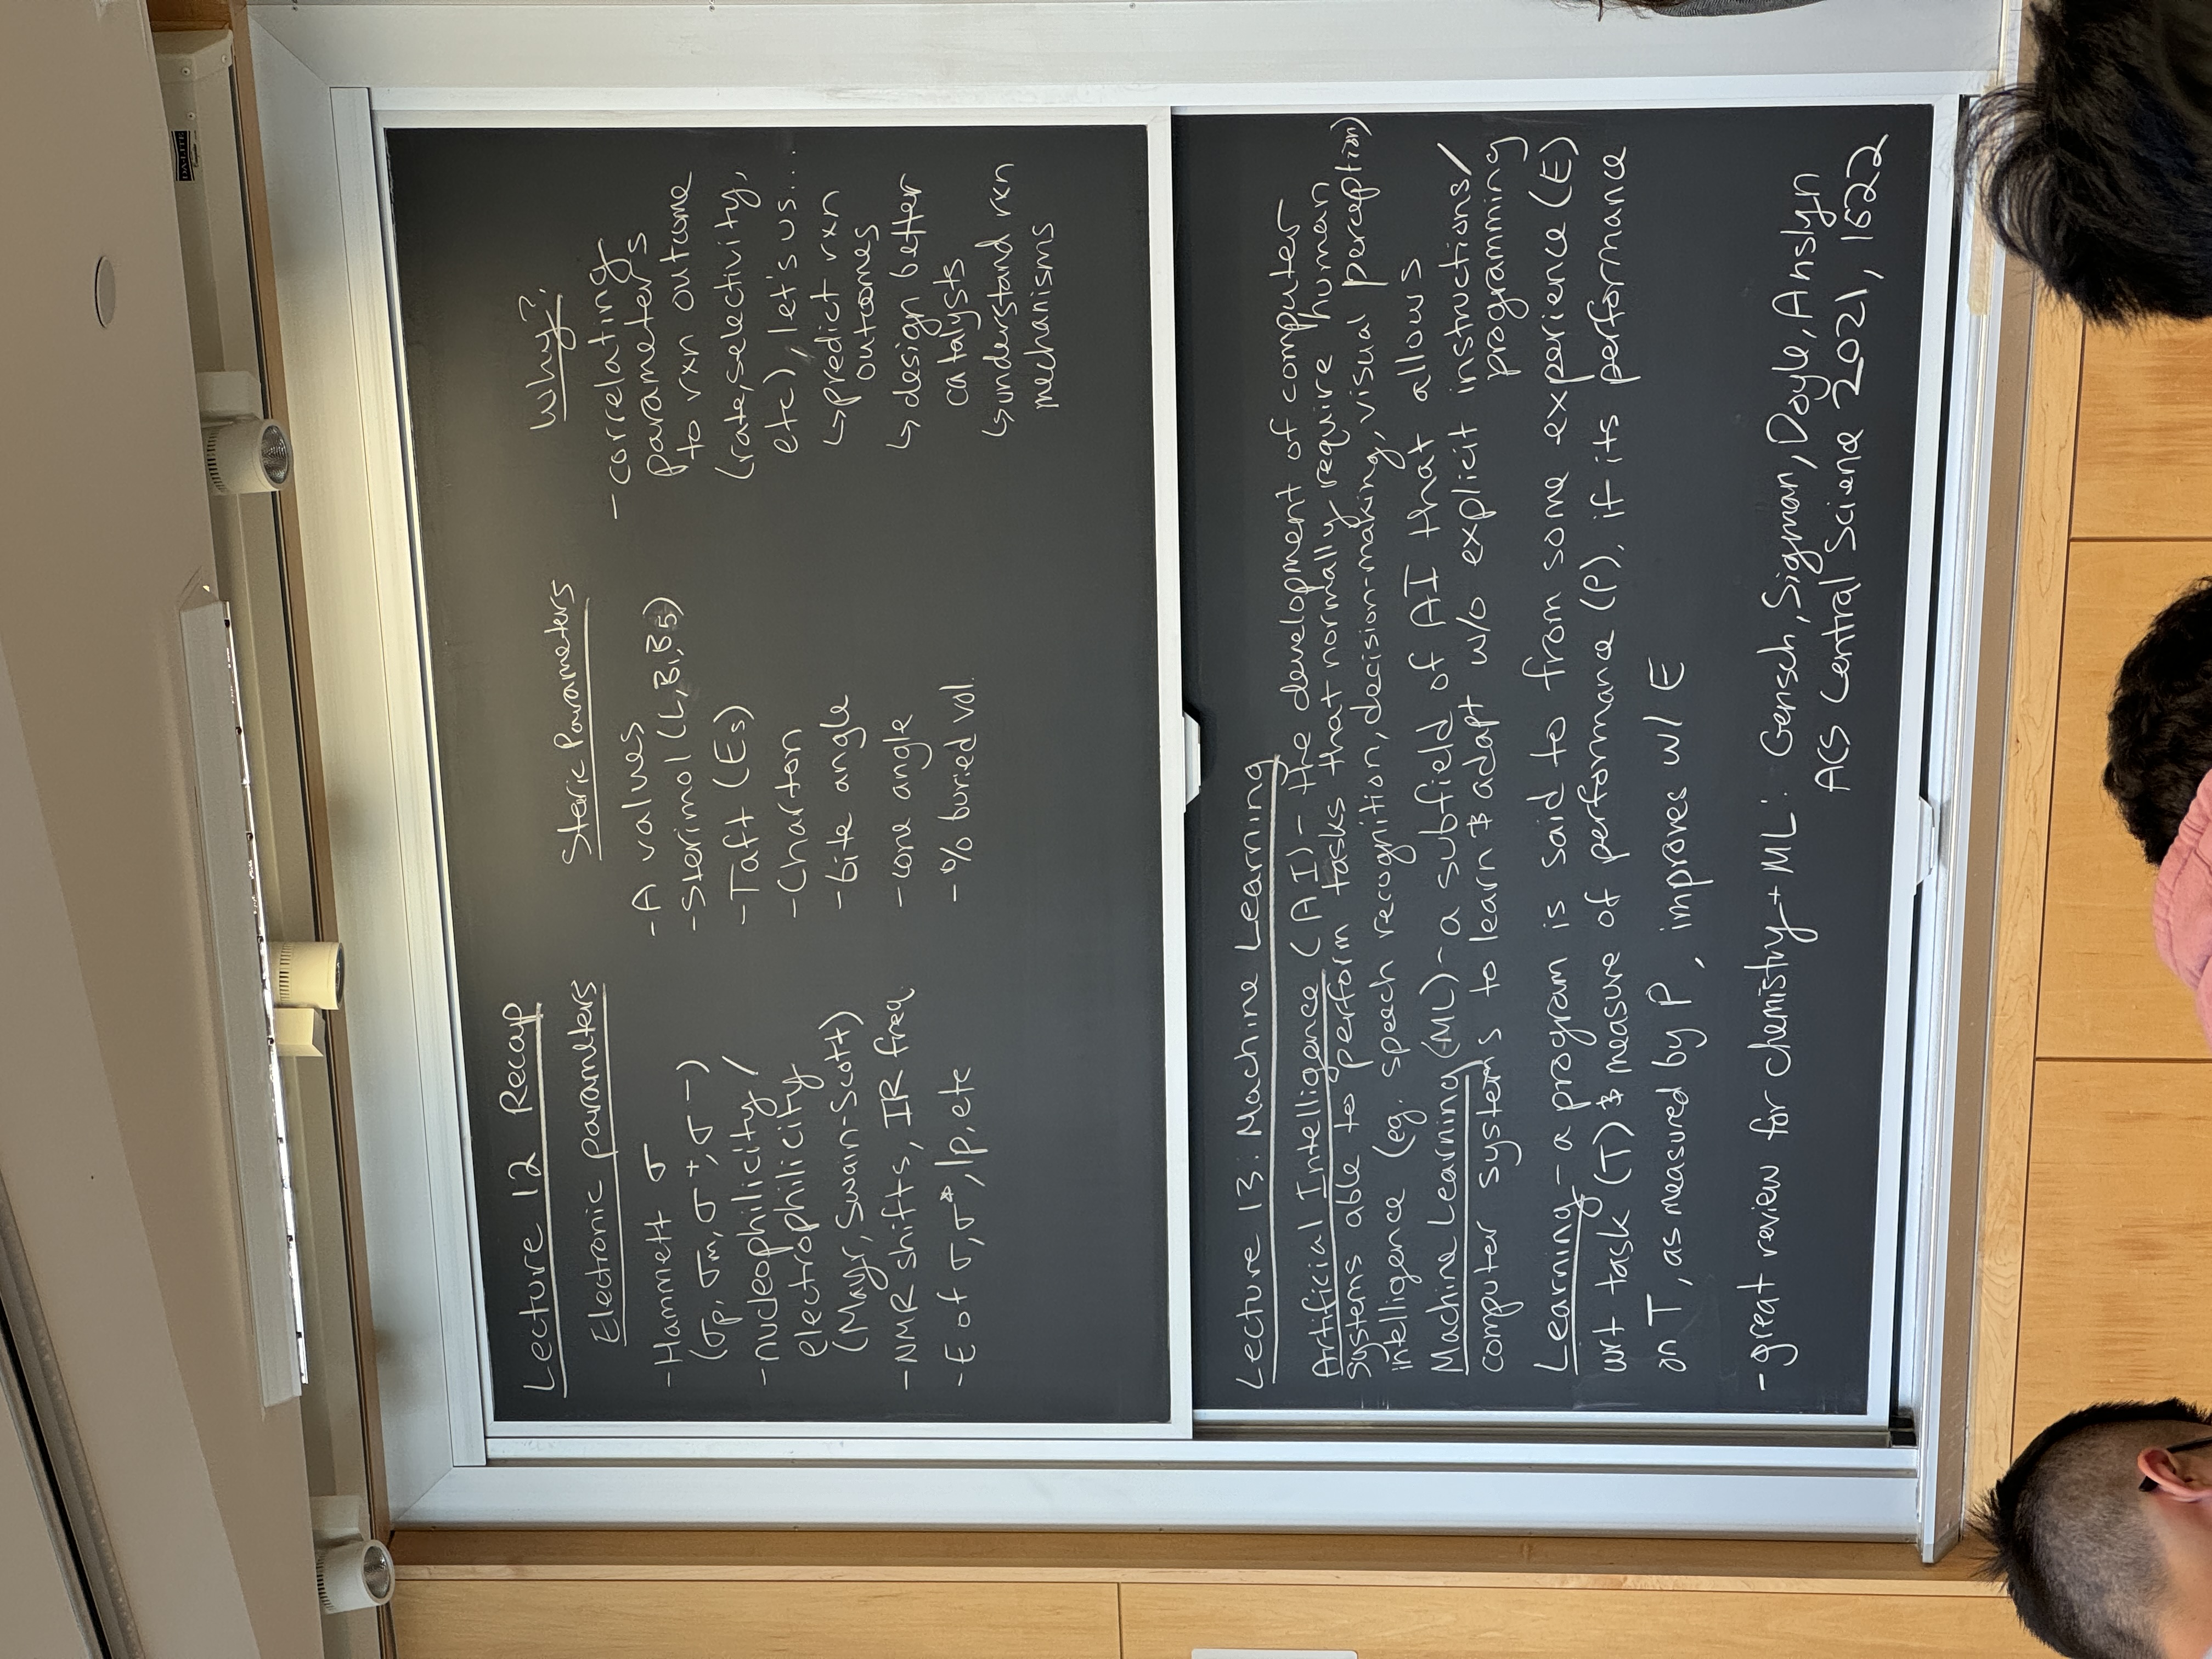 DA-LITE
Lecture 12 Recap
Electronic parameters
-Hammett σ
(σp, σm, σ+, σ-)
-nucleophilicity/
electrophilicity
(Mayr, Swain-Scott)
-NMR shifts, IR freq.
-E of σ, σ*, lp, etc
Steric Parameters
-A values
-Sterimol (L, B1, B5)
-Taft (Es)
-Charton
-bite angle
-cone angle
-% buried vol.
Why?
-correlating
parameters
to rxn outcome
(rate, selectivity,
etc), let's us...
↳predict rxn
outcomes
↳design better
catalysts
↳understand rxn
mechanisms
Lecture 13: Machine Learning
Artificial Intelligence (AI)- the development of computer
systems able to perform tasks that normally require human
intelligence (eg. speech recognition, decision-making, visual perception)
Machine Learning (ML)-a subfield of AI that allows
computer systems to learn & adapt w/o explicit instructions/
programming
Learning-a program is said to from some experience (E)
wrt task (T) & measure of performance (P), if its performance
on T, as measured by P, improves w/ E
-great review for chemistry + ML: Gensch, Sigman, Doyle, Anslyn
ACS Central Science 2021, 1622